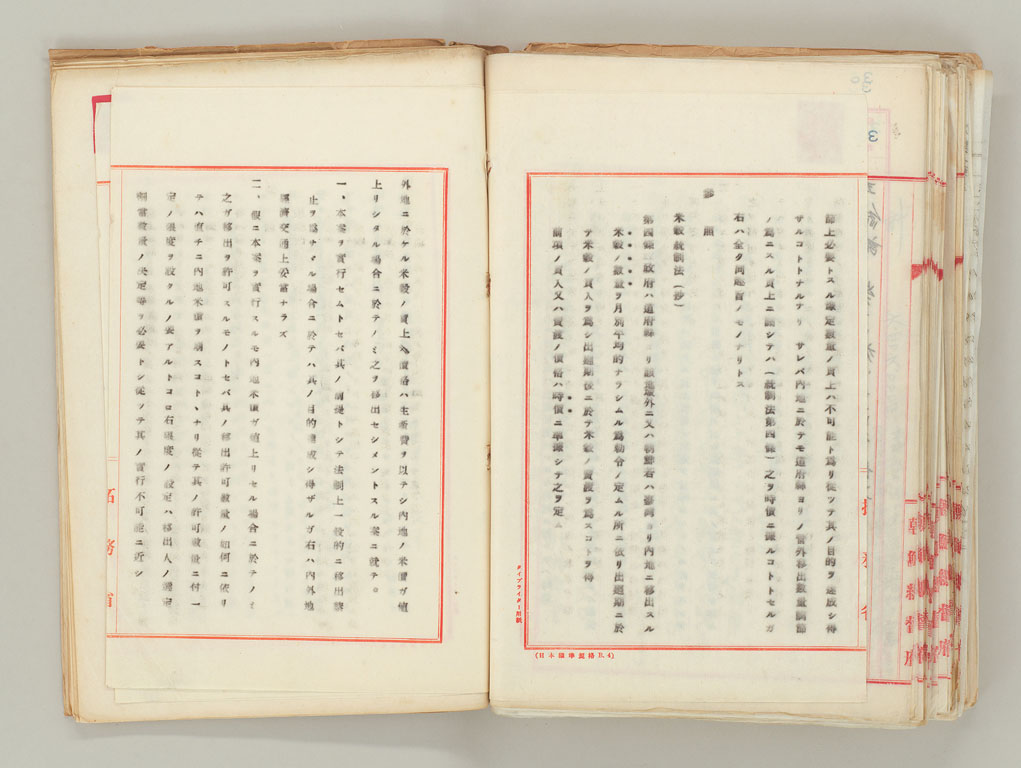 節上必要トスル緣定數量ノ買上ハ不可能ト爲リ從ツテ其ノ目的ヲ達成シ得
サルコトトナルナリ サレバ內地ニ於テモ道府縣ヨリノ管外移出數量調節
ノ爲ニスル買上ニ關シテハ(統制法第四條)之ヲ時價ニ據ルコトトセルガ
右ハ全ク同趣旨ノモノナリトス
參 照
米穀統制法(抄)
第四條 政府ハ道府縣ヨリ該區域外ニ又ハ朝鮮若ハ臺灣ヨリ內地ニ移出スル
米穀ノ數量ヲ月別平均的ナラシムル爲勅令ノ定ムル所ニ依リ出廻期ニ於
テ米穀ノ買入ヲ爲シ出廻期後ニ於テ米穀ノ賣渡ヲ爲スコトヲ得
前項ノ買入又ハ賣渡ノ價格ハ時價ニ準據シテ之ヲ定ム
タイプライター用紙
(日本標準規格B.4)
30
3
外地ニ於ケル米穀ノ買上ヘ價格ハ生產費ヲ以テシ內地ノ米價ガ値
上リシタル場合ニ於テノミ之ヲ移出セシメントスル案ニ就テ
一、本案ヲ實行セムトセバ其ノ前提トシテ法制上一般的ニ移出禁
止ヲ爲サザル場合ニ於テハ其ノ目的達成シ得ザルガ右ハ內外地
經濟交通上妥當ナラズ
二、假ニ本案ヲ實行スルモ內地米價ガ値上リセル場合ニ於テノミ
之ガ移出ヲ許可スルモノトセバ其ノ移出許可數量ノ如何ニ依リ
テハ直チニ內地米價ヲ崩スコトヽナリ從テ其ノ許可數量ニ付一
定ノ限度ヲ設クルノ要アルトコロ右限度ノ設定ハ移出人ノ割當
割當數量ノ決定等ヲ必要トシ從ツテ其ノ實行不可能ニ近シ
拓務省
朝鮮總督府